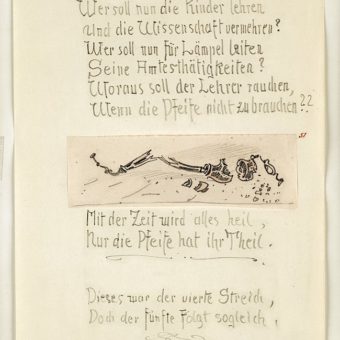 Wer soll nun die Kinder lehren
Und die Wissenschaft vermehren?
Wer soll nun für Lämpel leiten
Seine Amtesthätigkeiten?
Woraus soll der Lehrer rauchen,
Wenn die Pfeife nicht zu brauchen??
51
Mit der Zeit wird alles heil,
Nur die Pfeife hat ihr Theil.
Dieses war der vierte Streich,
Doch der fünfte folgt sogleich.